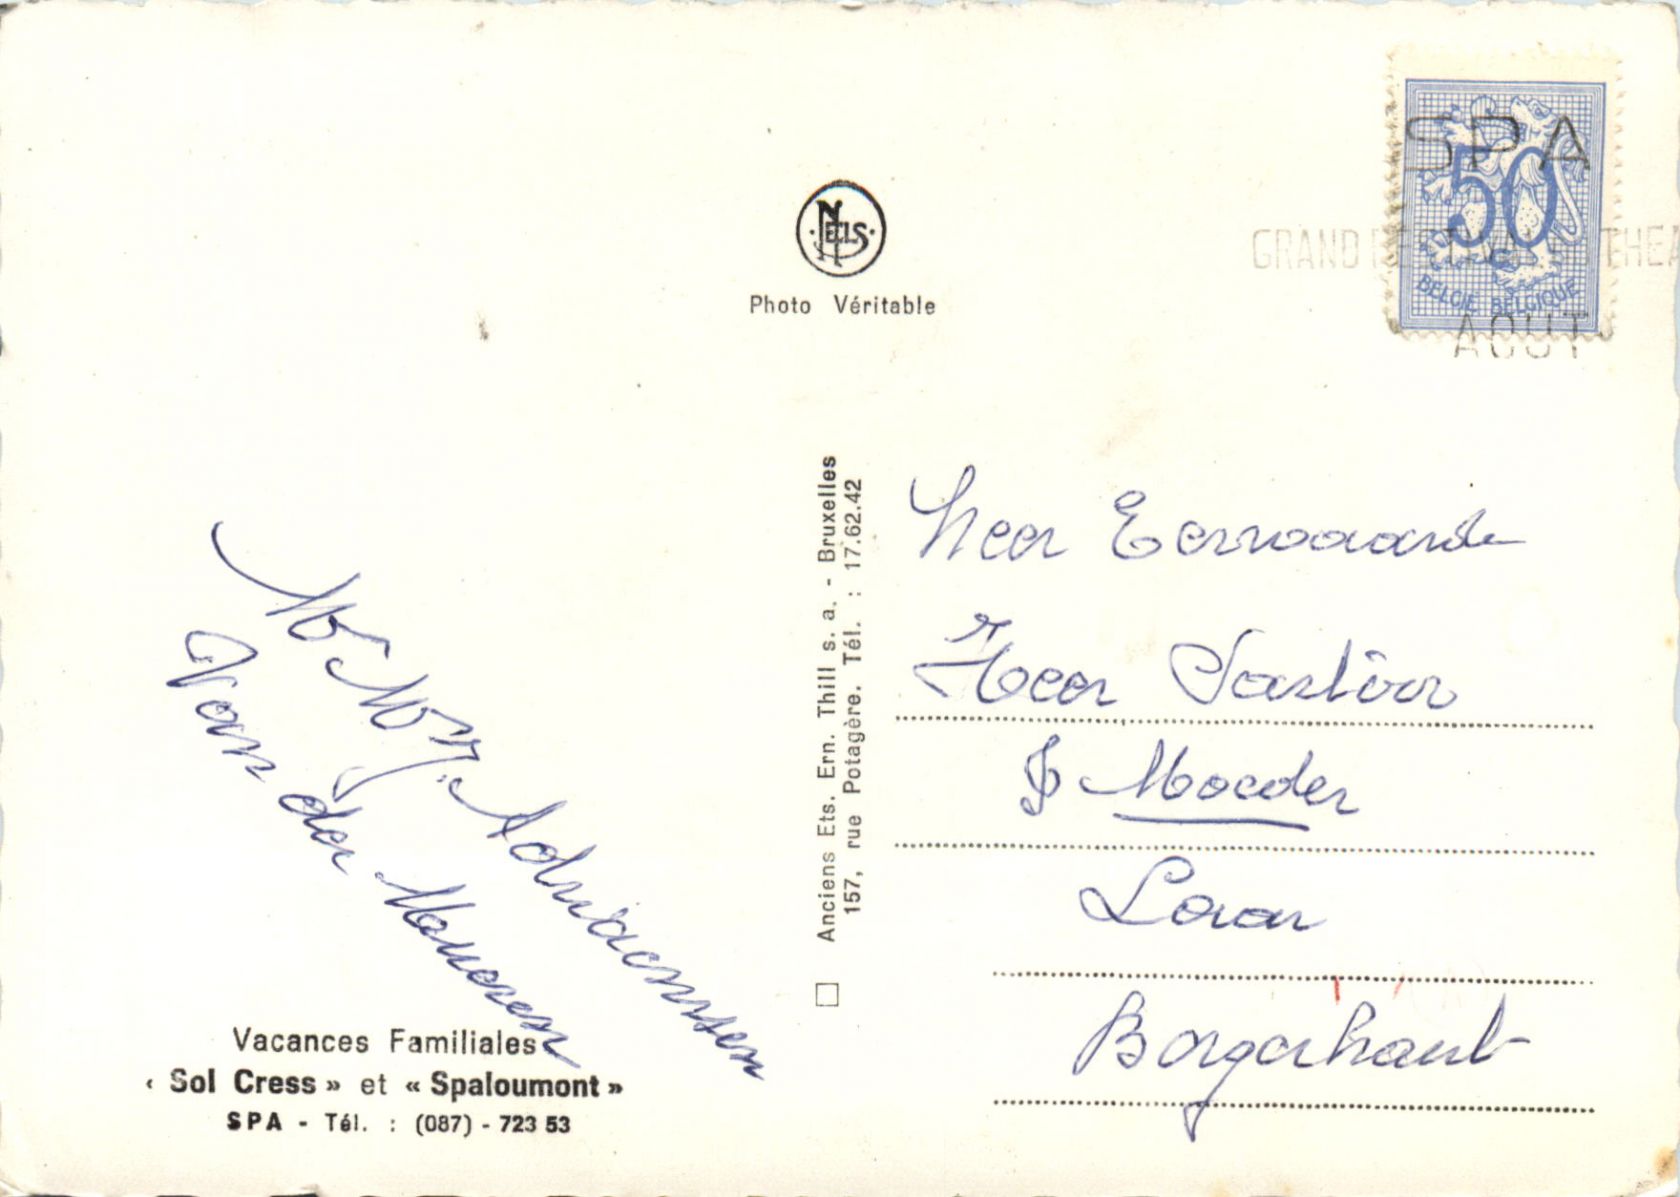 SPA
50
GRAND FESTIVAL THEA
BELGIË BELGIQUE
AOUT
NELS
Photo Véritable
Anciens Ets. Ern. Thill s. a. - Bruxelles
157, rue Potagère. Tél. : 17.62.42
Zeer Eerwaarde
Heer Pastoor
Moeder
Borgerhout
Mr Mw J. Adriaenssen
Van der Moueren
Vacances Familiales
‹ Sol Cress » et « Spaloumont »
SPA - Tél. : (087) - 723 53